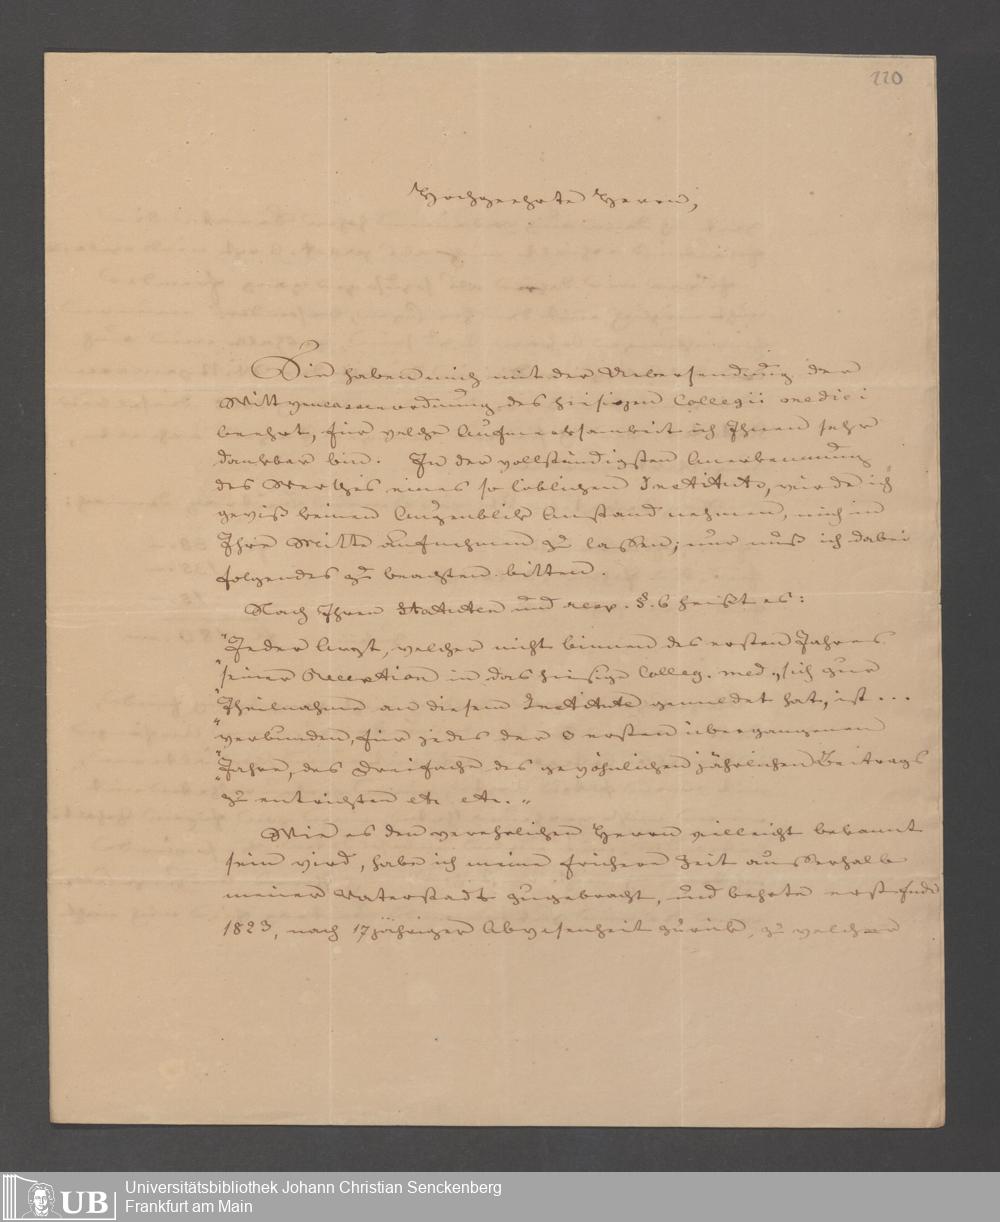 110
Hochgeehrte Herrn,
Sie haben mich mit der Uebersendung der
Wittwencasseordnung des hiesigen Collegii medici
beehrt, für welche Aufmerksamkeit ich Ihnen sehr
dankbar bin. In der vollständigsten Anerkennung
des Werthes eines so löblichen Instituts, würde ich
gewiß keinen Augenblick Anstand nehmen, mich in
Ihre Mitte aufnehmen zu lassen; nur muß ich dabei
folgendes zu beachten bitten.
Nach Ihren Statuten und resp. §. 6 heißt es:
"Jeder Arzt, welcher nicht binnen des ersten Jahres
"seiner Reception in das hiesige Colleg. med., sich zur
"Theilnahme an diesem Institute gemeldet hat, ist ...
"verbunden, für jedes der ersten übergangenen
"Jahre, das Dreifache des gewöhnlichen jährlichen Beitrags
zu entrichten etc etc. "
Wie es den verehrlichen Herrn vielleicht bekannt
sein wird, habe ich meine frühere Zeit ausserhalb
meiner Vaterstadt zugebracht, und kehrte erst Ende
1823, nach 17jähriger Abwesenheit zurück, zu welcher
UB
Universitätsbibliothek Johann Christian Senckenberg
Frankfurt am Main